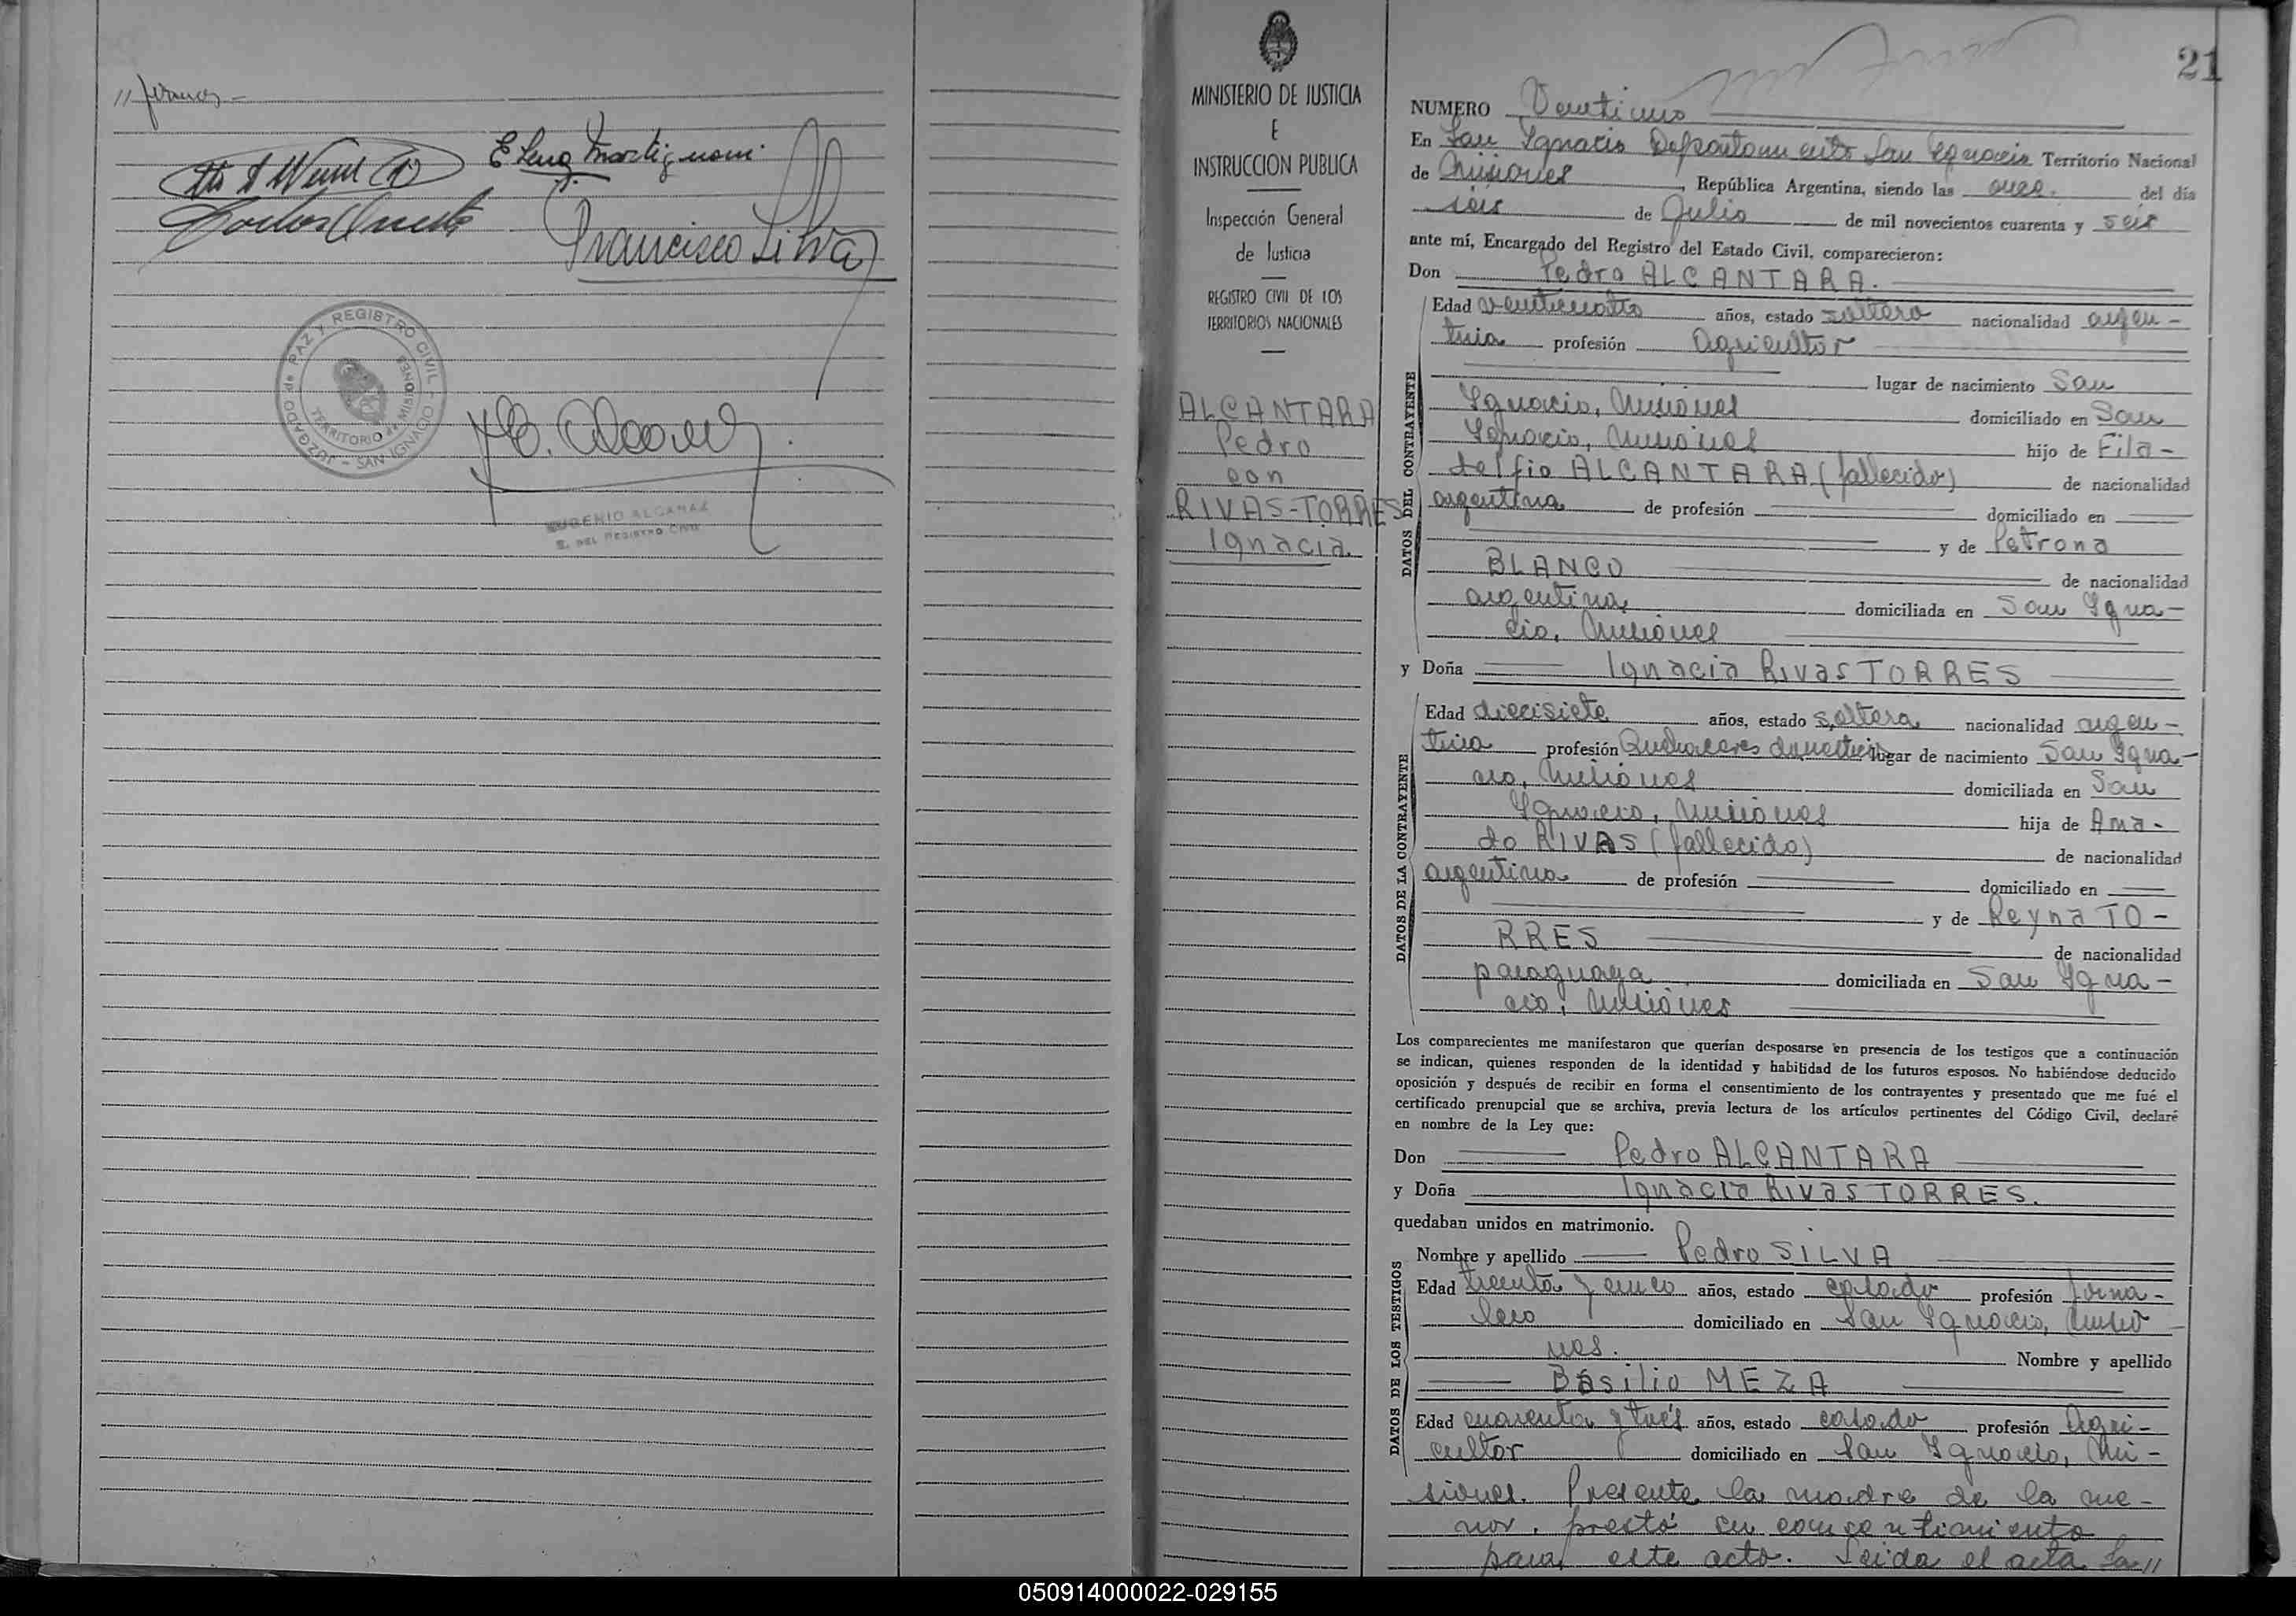 // firman -
Elena Martignoni
Francisco Silva
JUZGADO de PAZ Y REGISTRO CIVIL
TERRITORIO de MISIONES
- SAN IGNACIO -
EUGENIO ALCARAZ
E. DEL REGISTRO CIVIL
MINISTERIO DE JUSTICIA
E
INSTRUCCION PUBLICA
Inspección General
de Justicia
REGISTRO CIVIL DE LOS
TERRITORIOS NACIONALES
ALCANTARA
Pedro
con
RIVAS-TORRES
Ignacia.
21
NUMERO Veintiuno
En San Ignacio Departamento San Ignacio Territorio Nacional
de Misiones, República Argentina, siendo las once. del día
seis de Julio de mil novecientos cuarenta y seis
ante mí, Encargado del Registro del Estado Civil, comparecieron:
Don Pedro ALCANTARA.
DATOS DEL CONTRAYENTE
Edad veinticuatro años, estado soltero nacionalidad argen-
tina profesión Agricultor
lugar de nacimiento San
Ignacio, Misiones domiciliado en San
Ignacio, Misiones hijo de Fila-
delfio ALCANTARA (fallecido) de nacionalidad
argentina de profesión domiciliado en
y de Petrona
BLANCO de nacionalidad
argentina, domiciliada en San Igna-
cio, Misiones
y Doña Ignacia Rivas TORRES
DATOS DE LA CONTRAYENTE
Edad diecisiete años, estado soltera nacionalidad argen-
tina profesión Quehaceres domésticos lugar de nacimiento San Igna-
cio, Misiones domiciliada en San
Ignacio, Misiones hija de Ama-
do RIVAS (fallecido) de nacionalidad
argentina de profesión domiciliado en
y de Reyna TO-
RRES de nacionalidad
paraguaya domiciliada en San Igna-
cio, Misiones
Los comparecientes me manifestaron que querían desposarse en presencia de los testigos que a continuación
se indican, quienes responden de la identidad y habilidad de los futuros esposos. No habiéndose deducido
oposición y después de recibir en forma el consentimiento de los contrayentes y presentado que me fué el
certificado prenupcial que se archiva, previa lectura de los artículos pertinentes del Código Civil, declaré
en nombre de la Ley que:
Don Pedro ALCANTARA
y Doña Ignacia Rivas TORRES.
quedaban unidos en matrimonio.
DATOS DE LOS TESTIGOS
Nombre y apellido Pedro SILVA
Edad treinta y cinco años, estado casado profesión Jorna-
lero domiciliado en San Ignacio, Misio
nes. Nombre y apellido
Basilio MEZA
Edad cuarenta y tres años, estado casado profesión Agri-
cultor domiciliado en San Ignacio, Mi-
siones. Presente la madre de la me-
nor, prestó su consentimiento
para este acto. Leida el acta la//
050914000022-029155